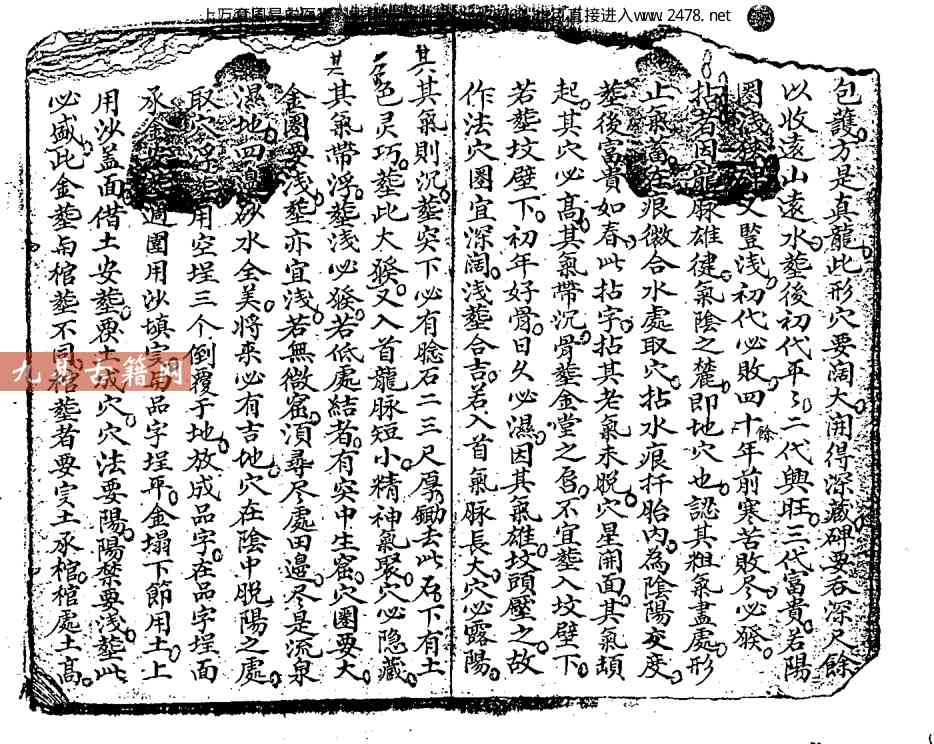 直接进入www.2478.net
包護方是真龍此形穴要濶大開得深藏碑要吞深尺餘
以收遠山遠水塟後初代平〻二代興旺三代富貴若陽
圈淺 又豎淺初代必敗四十餘年前寒苦敗尽必發
拈者因龍脉雄健氣陰之麓即地穴也認其粗氣盡處形
止氣蓄在痕微合水處取穴拈水痕扦胎内為陰陽交度
塟後富貴如春此拈字拈其老氣未脱穴星開面其氣頡
起其穴必高其氣帶沉骨塟金堂之旨不宜塟入坟壁下
若塟坟壁下初年好骨日久必濕因其氣雄坟頭壓之故
作法穴圈宜深濶淺塟合吉若入首氣脉長大穴必露陽
其其氣則沉塟突下必有脸石二三尺厚鋤去此石下有土
色灵巧塟此大發又入首龍脉短小精神氣聚穴必隐藏
其其氣帶浮塟淺必發若低處結者有突中生窟穴圈要大
金圈要淺塟亦宜淺若無微窟須尋尽處田邊尽是流泉
濕地四邊砂水全美將來必有吉地穴在陰中脱陽之處
取穴浮塟用空埕三个倒覆于地放成品字在品字埕面
承金安塟週圍用沙填实與品字埕平金塌下節用土上
用沙盖面借土安塟要土成穴穴法要陽陽禁要淺塟此
必盛此金塟与棺塟不同棺塟者要实土承棺棺處土高
九某古籍网